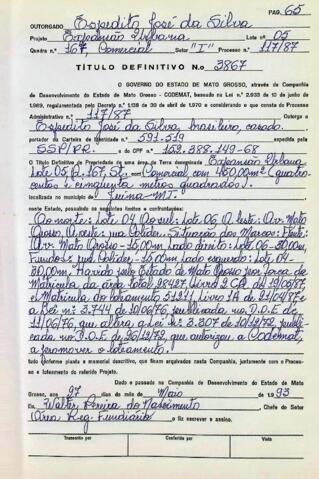 PAG. 65
OUTORGADO Expedito José da Silva
Projeto Expansão Urbana Lote nº 05
Quadra n.º 167, Comercial Setor "I" Processo n.º 117/87
TÍTULO DEFINITIVO N.o 3867
O GOVERNO DO ESTADO DE MATO GROSSO, através de Companhia
de Desenvolvimento do Estado de Mato Grosso - CODEMAT, baseado na Lei n.º 2.933 de 10 de junho
de 1969, regulamentado pelo Decreto n.º 1.138 de 39 de abril de 1970 e considerando o que consta do Processo
Administrativo n.º 117/87 Outorga a
Expedito José da Silva brasileiro, casado.
portador da Carteira de Identidade n.º 591.519 expedida pela
SSP/PR. e do CPF n.º 163.388.149-68
O Título Definitivo de Propriedade de uma área de Terra denominada Expansão Urbana
Lote 05, Q. 167, St. Comercial, com 450,00m² (quatro-
centos e cinquenta metros quadrados).
localizada no município de Juina-MT.
neste Estado, possuindo os seguintes limites e confrontações:
Ao norte: Lote 04, Ao sul: Lote 06, A leste: Av. Mato
Grosso, A oeste: rua Colider. Situação dos Marcos: Frente:
Av. Mato Grosso - 15,00m Lado direito: Lote 06 - 30,00m,
Fundos: rua Colider - 15,00m lado esquerdo: Lote 04 -
30,00m. Havido pelo Estado de Mato Grosso por força de
Matrícula da área total 28427, Livro 2
e Matrícula do loteamento 51211 Livro 1A de 21/04/87 e
a Lei n.º 3.744 de 10/06/76, publicada no D.O.E. de
11/06/76, que altera a Lei n.º 3.307 de 10/12/72, publi-
cada no D.O.E de 26/12/72, que autorizou a Codemat,
a promover o loteamento.
tudo conforme planta e memorial descritivo, que ficam arquivados nesta Companhia, juntamente com o Proces-
so e loteamento do referido Projeto.
Dado e passado na Companhia de Desenvolvimento do Estado de Mato
Grosso, aos 27 dias do mês de Maio de 1.993
Eu, Walter Pereira do Nascimento, Chefe do Setor
Área Reg. Fundiária o fiz escrever e assino.
Transcrito por Conferido por Visto